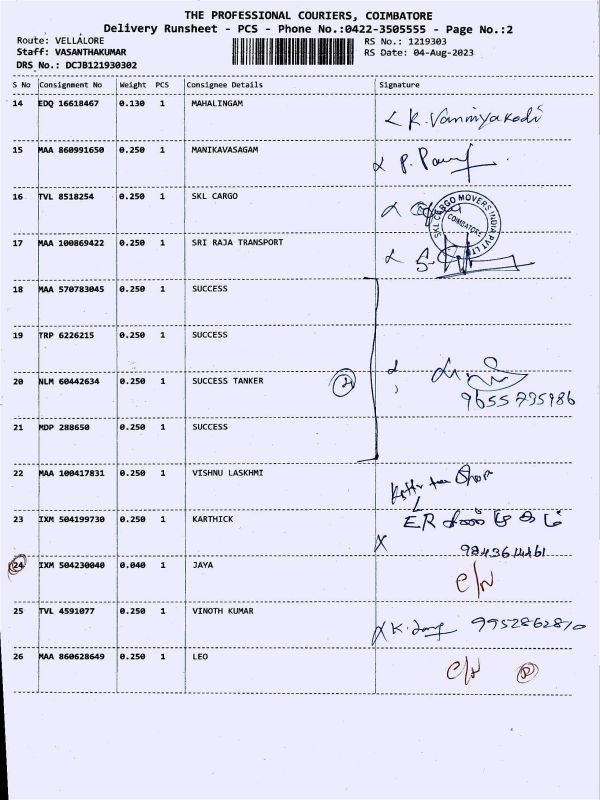 THE PROFESSIONAL COURIERS, COIMBATORE
Delivery Runsheet - PCS - Phone No.:0422-3505555 - Page No.:2
Route: VELLALORE
RS No.: 1219303
Staff: VASANTHAKUMAR
RS Date: 04-Aug-2023
DRS No.: DCJB121930302
S No Consignment No Weight PCS Consignee Details Signature
14 EDQ 16618467 0.130 1 MAHALINGAM
15 MAA 860991650 0.250 1 MANIKAVASAGAM
16 TVL 8518254 0.250 1 SKL CARGO
SKL CARGO MOVERS INDIA PVT LTD
COIMBATORE
17 MAA 100869422 0.250 1 SRI RAJA TRANSPORT
18 MAA 570783045 0.250 1 SUCCESS
19 TRP 6226215 0.250 1 SUCCESS
20 NLM 60442634 0.250 1 SUCCESS TANKER
9655735986
21 MDP 288650 0.250 1 SUCCESS
22 MAA 100417831 0.250 1 VISHNU LASKHMI
23 IXM 504199730 0.250 1 KARTHICK
ER
9843614461
24 IXM 504230040 0.040 1 JAYA
25 TVL 4591077 0.250 1 VINOTH KUMAR 9952862810
26 MAA 860628649 0.250 1 LEO